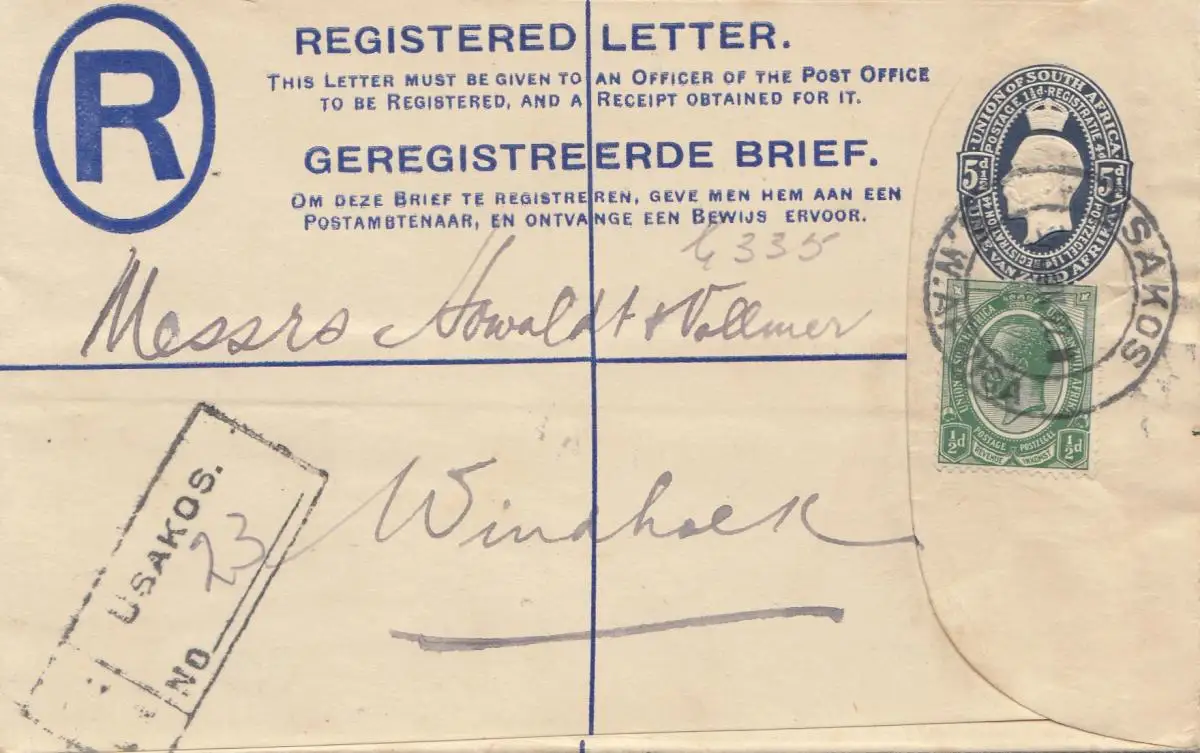 R
REGISTERED LETTER.
THIS LETTER MUST BE GIVEN TO AN OFFICER OF THE POST OFFICE
TO BE REGISTERED, AND A RECEIPT OBTAINED FOR IT.
GEREGISTREERDE BRIEF.
OM DEZE BRIEF TE REGISTREREN, GEVE MEN HEM AAN EEN
POSTAMBTENAAR, EN ONTVANGE EEN BEWIJS ERVOOR.
UNION OF SOUTH AFRICA
POSTAGE 1½d·REGISTRATIE 4d
5d 1/2
5d
REGISTRATION 4d POSTZEGEL 1½d
UNIE VAN ZUID AFRIKA
335
Messrs Howaldt & Vollmer
USAKOS
S.W.A.
UNION OF SOUTH AFRICA
½d
½d
POSTAGE POSTZEGEL
REVENUE INKOMST
Windhoek
USAKOS.
No 23